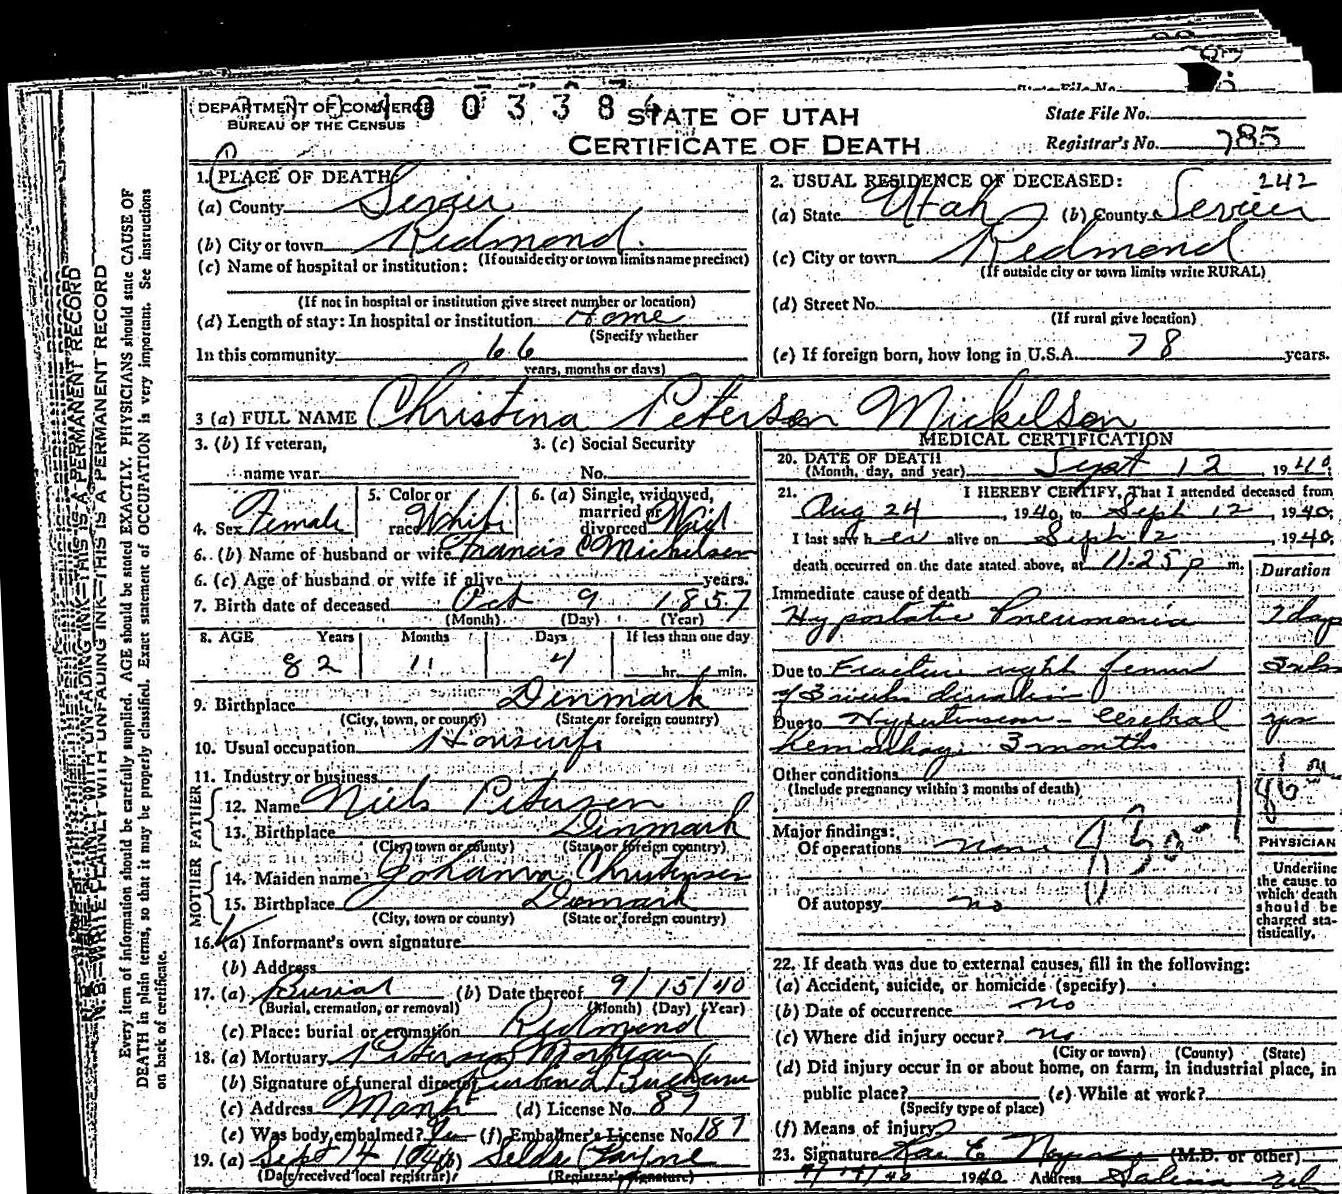 DEPARTMENT OF COMMERCE
BUREAU OF THE CENSUS
STATE OF UTAH
CERTIFICATE OF DEATH
State File No.
Registrar's No. 785
1. PLACE OF DEATH:
(a) County Sevier
(b) City or town Redmond.
(If outside city or town limits name precinct)
(c) Name of hospital or institution:
(If not in hospital or institution give street number or location)
(d) Length of stay: In hospital or institution Home
(Specify whether
In this community 66
years, months or days)
2. USUAL RESIDENCE OF DECEASED: 242
(a) State Utah (b) County Sevier
(c) City or town Redmond
(If outside city or town limits write RURAL)
(d) Street No.
(If rural give location)
(e) If foreign born, how long in U.S.A. 78 years.
3 (a) FULL NAME Christina Peterson Mickelson
3. (b) If veteran,
name war
3. (c) Social Security
No.
4. Sex Female
5. Color or
race White
6. (a) Single, widowed,
married or
divorced Wid
6. (b) Name of husband or wife Francis C Mickelson
6. (c) Age of husband or wife if alive years.
7. Birth date of deceased Oct 9 1857
(Month) (Day) (Year)
8. AGE Years Months Days If less than one day
82 11 4 hr. min.
9. Birthplace Denmark
(City, town, or county) (State or foreign country)
10. Usual occupation Housewife
11. Industry or business
FATHER
12. Name Niels Petersen
13. Birthplace Denmark
(City, town or county) (State or foreign country)
MOTHER
14. Maiden name Johanna Christensen
15. Birthplace Denmark
(City, town or county) (State or foreign country)
16. (a) Informant's own signature
(b) Address
17. (a) Burial (b) Date thereof 9/15/40
(Burial, cremation, or removal) (Month) (Day) (Year)
(c) Place: burial or cremation Redmond
18. (a) Mortuary Petersen Mortuary
(b) Signature of funeral director
(c) Address Manti (d) License No. 87
(e) Was body embalmed? Yes (f) Embalmer's License No. 187
19. (a) Sept 14 1940 (b) Selda Payne
(Date received local registrar) (Registrar's signature)
MEDICAL CERTIFICATION
20. DATE OF DEATH
(Month, day, and year) Sept 12 1940
21. I HEREBY CERTIFY, That I attended deceased from
Aug 24, 1940, to Sept 12, 1940,
I last saw her alive on Sept 12, 1940,
death occurred on the date stated above, at 11:25 p m.
Duration
Immediate cause of death
Hypostatic Pneumonia 7 days
Due to Fracture right femur 3 wks
of 3 weeks duration
Due to Hypertension - Cerebral yrs
hemorrhage 3 months
Other conditions
(Include pregnancy within 3 months of death)
Major findings:
Of operations none
Of autopsy no
PHYSICIAN
Underline
the cause to
which death
should be
charged sta-
tistically.
22. If death was due to external causes, fill in the following:
(a) Accident, suicide, or homicide (specify)
(b) Date of occurrence no
(c) Where did injury occur? no
(City or town) (County) (State)
(d) Did injury occur in or about home, on farm, in industrial place, in
public place? (e) While at work?
(Specify type of place)
(f) Means of injury?
23. Signature Rae E. (M.D. or other)
9/14/40 1940 Address Salina Ut
N. B.—WRITE PLAINLY WITH UNFADING INK—THIS IS A PERMANENT RECORD
Every item of information should be carefully supplied. AGE should be stated EXACTLY. PHYSICIANS should state CAUSE OF
DEATH in plain terms, so that it may be properly classified. Exact statement of OCCUPATION is very important. See instructions
on back of certificate.